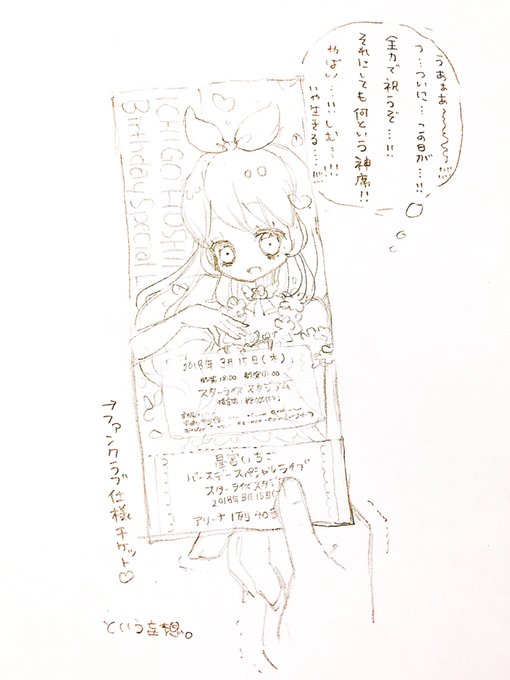 うぁぁぁ〜〜〜〜!!!
つ…ついに…この日が…!!
全力で祝うぞ…!!
それにしても何という神席!!
やばい…!! しむ…!!
いや生きる…!!!
ICHIGO HOSHIMIYA
Birthday Special L
2018年 3月15日(木)
開場 18:00 開演 19:00
スターライズスタジアム
星宮いちご
バースデースペシャルライブ
スターライズスタジ
2018年3月15日(
アリーナ 1列 40
→ファンクラブ仕様チケット♡
という妄想。